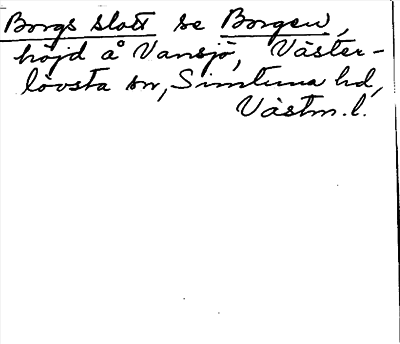 Borgs slott se Borgen,
höjd å Vansjö, Väster-
lövsta sn, Simtuna hd,
Västm. l.